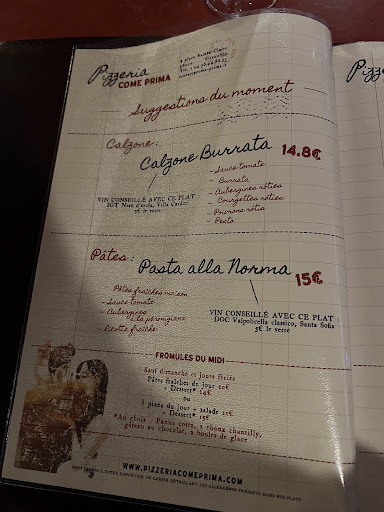 Pizzeria
COME PRIMA
Suggestions du moment
Calzone:
Calzone Burrata 14.8€
- Sauce tomate
- Burrata
- Aubergines rôties
- Courgettes rôties
- Poivrons rôtis
- Pesto
VIN CONSEILLÉ AVEC CE PLAT
IGT Nero d'avola, Villa Cardini
5€ le verre
Pâtes:
Pasta alla Norma 15€
- Pâtes fraîches maison
- Sauce tomate
- Aubergines
à la parmigiana
- Ricotta fraîche
VIN CONSEILLÉ AVEC CE PLAT :
DOC Valpolicella classico, Santa Sofia
5€ le verre
FROMULES DU MIDI
Sauf dimanche et jours fériés
Pâtes fraîches du jour 10€
+ Dessert* 14€
ou
1 pizza du jour + salade 11€
+ Dessert* 15€
*Au choix : Panna cotta, 2 choux chantilly,
gâteau au chocolat, 2 boules de glace
WWW.PIZZERIACOMEPRIMA.COM
Pizze